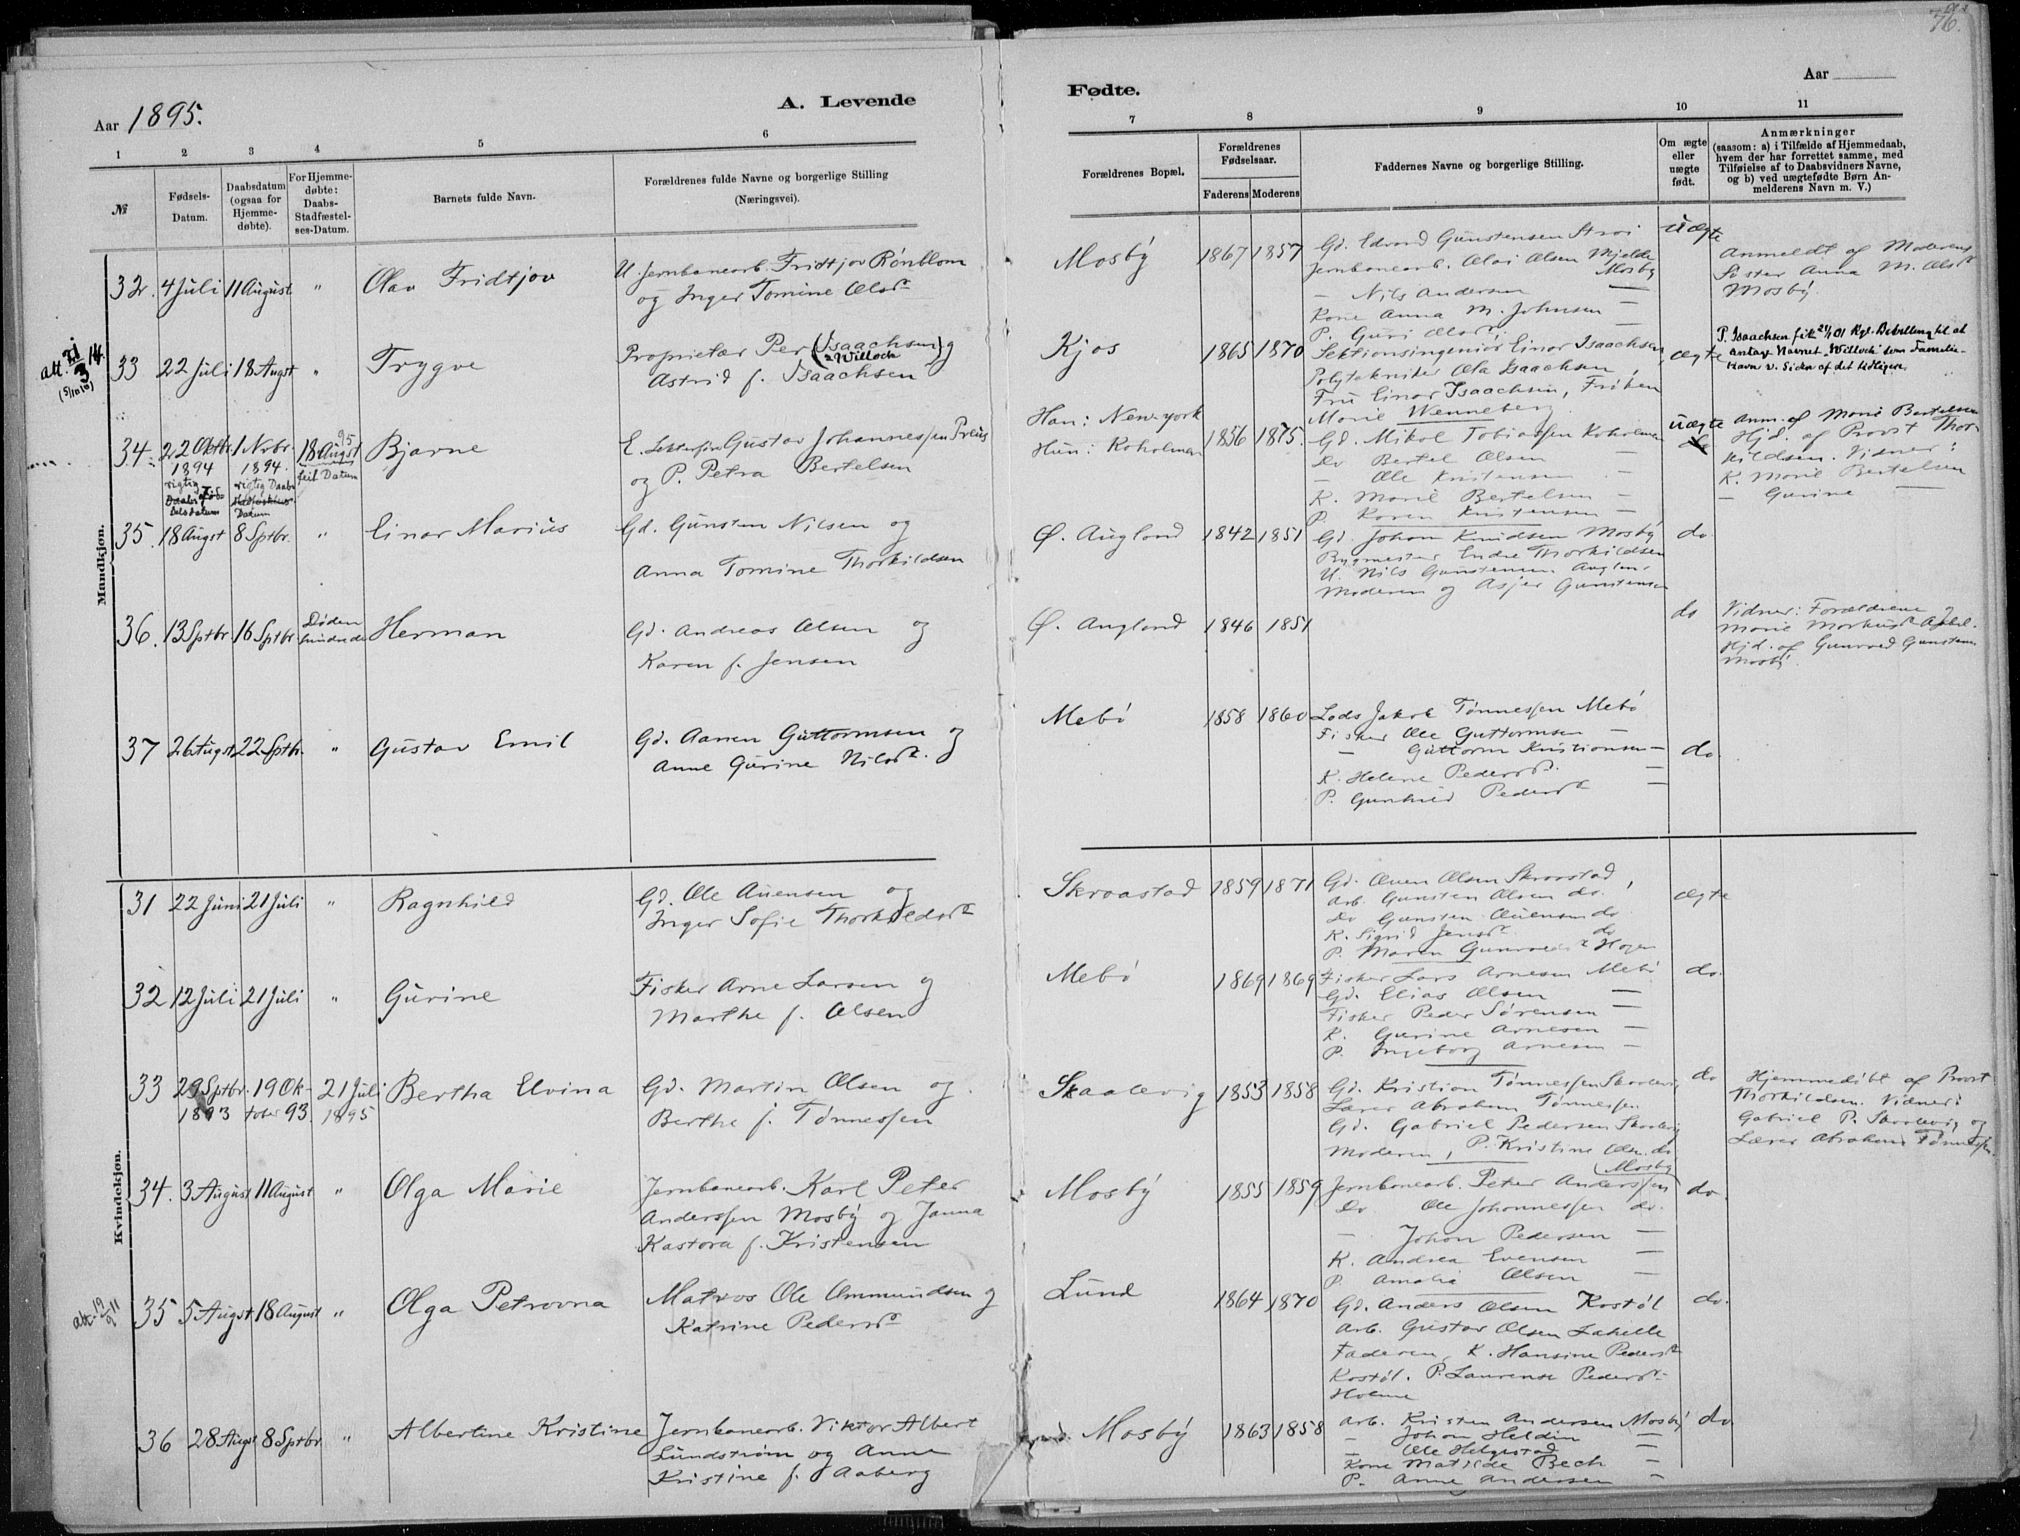 76.
Aar 1895.
A. Levende
Fødte.
Aar
1
2
3
4
5
6
7
8
9
10
11
№
Fødsels-
Datum.
Daabsdatum
(ogsaa for
Hjemme-
døbte).
For Hjemme-
døbte:
Daabs-
Stadfæstel-
ses-Datum.
Barnets fulde Navn.
Forældrenes fulde Navne og borgerlige Stilling
(Næringsvei).
Forældrenes Bopæl.
Forældrenes
Fødselsaar.
Faderens Moderens
Faddernes Navne og borgerlige Stilling.
Om ægte
eller
uægte
født.
Anmærkninger
(saasom: a) i Tilfælde af Hjemmedaab,
hvem der har forrettet samme, med
Tilføielse af to Daabsvidners Navne,
og b) ved uægtefødte Børn An-
melderens Navn m. V.)
Mandkjøn.
32. 4 Juli 11 August " Olav Fridtjov
U. Jernbanearb. Fridtjov Rønblom
og Inger Tomine Olsdr
Mosby 1867 1857
Gd. Edvard Gunstensen Strai
Jernbanearb. Olai Olsen Mjelde
Mosby
— Nils Andersen —
Kone Anna M. Johnsen —
P. Guri Olsdr
uægte
Anmeldt af Moderens
Søster Anna M. Olsdr
Mosby.
att. 21/3 14.
33 22 Juli 18 Augst " Trygve
Proprietær Per (Isaachsen) og
Willoch
Astrid f. Isaachsen
Kjos 1865 1870
Sektionsingeniør Einar Isaachsen,
Polytekniker Ola Isaachsen,
Fru Einar Isaachsen, Frøken
Marie Wenneberg
ægte
P. Isaachsen fik 21/1 01 Kgl. Bevilling til at
antage Navnet "Willoch" som Familie-
navn v. Siden af det tidligere.
34. 22 Oktbr 1 Nvbr 18 Augst 95 Bjarne
1894 1894. feil Datum
rigtig rigtig Daabs
Fød-
selsdatum Datum
E. Gustav Johannessen Preus
og P. Petra Bertelsen
Han: New-york
Hun: Koholmen 1856 1875.
Gd. Mikal Tobiassen Koholmen
Do Bertel Olsen —
— Ole Kristensen —
K. Marie Bertelsen —
P. Karen Kristensen —
uægte
Anm. af Marie Bertelsen
Hjd. af Provst Thor-
kildsen. Vidner:
K. Marie Bertelsen
— Gurine —
35. 18 Augst 8 Sptbr. " Einar Marius
Gd. Gunsten Nilsen og
Anna Tomine Thorkildsen
Ø. Augland 1842 1851
Gd. Johan Knudsen Mosby
Bygmester Endre Thorkildsen
U. Nils Gunstensen Augland
Moderen og Asjer Gunstensen
do
36. 13 Sptbr. 16 Sptbr Døden Herman
Gd. Andreas Olsen og
Karen f. Jensen
Ø. Augland 1846 1851
do
Vidner: Forældrene
Marie
Hjd. af Gunvald Gunstens.
Mosby.
37 26 Augst 22 Sptbr. " Gustav Emil
Gd. Aanen Guttormsen og
Anne Gurine Nilsdr.
Mebø 1858 1860
Lods Jakob Tønnessen Mebø
Fisker Ole Guttormsen —
— Guttorm Kristiansen —
K. Helene Pedersdr. —
P. Gunhild Pedersdr —
do.
Kvindekjøn.
31 22 Juni 21 Juli " Ragnhild
Gd. Ole Auensen og
Inger Sofie Thorkildsdr
Skraastad 1859 1871
Gd. Auen Olsen Skraastad,
Arb. Gunsten Olsen do.
Do Gunsten Auensen do
K. Sigrid Jensdr do
P. Maren
ægte
32 12 Juli 21 Juli " Gurine
Fisker Arne Larsen og
Marthe f. Olsen
Mebø 1869 1869
Fisker Lars Arnesen Mebø
Gd. Elias Olsen —
Fisker Peder Sørensen —
K. Gurine Arnesen —
P. Ingeborg Arnesen —
do.
33 29 Sptbr. 19 Ok- 21 Juli Bertha Elvina
1893 tober 93. 1895
Gd. Martin Olsen og
Berthe f. Tønnessen
Skaalevig 1853 1858
Gd. Kristian Tønnessen Skaalevig
Lærer Abraham Tønnessen
Gd. Gabriel Pedersen Skaalevig
Moderen, P. Kristine Olsen do
do
Hjemmedøbt af Provst
Thorkildsen. Vidner:
Gabriel P. Skaalevig og
Lærer Abraham Tønnessen.
34. 3 August 11 August " Olga Marie
Jernbanearb. Karl Peter
Anderssen Mosby og Janna
Kastora f. Kristensen
Mosby 1855 1859
(Mosby
Jernbanearb. Peter Anderssen
Do Ole Johannessen do.
— Johan Pedersen —
K. Andrea Evensen —
P. Amalia Olsen —
do.
att. 19/9 11
35 5 Augst 18 August " Olga Petrovna
Matros Ole Ommundsen og
Katrine Pedersdr
Lund 1864 1870
Gd. Anders Olsen Kostøl
Arb. Gustav Olsen Lahelle
Faderen, K. Hansine Pedersdr
Kostøl. P. Laurense Pedersdr
Holme
do.
36 28 Augst 8 Sptbr " Albertine Kristine
Jernbanearb. Viktor Albert
Lundstrøm og Anne
Kristine f. Aaberg
Mosby 1863 1858
Arb. Kristen Andersen Mosby
— Johan Heldin —
— Ole Helgestad —
Kone Matilde Bech —
P. Anne Andersen —
do.